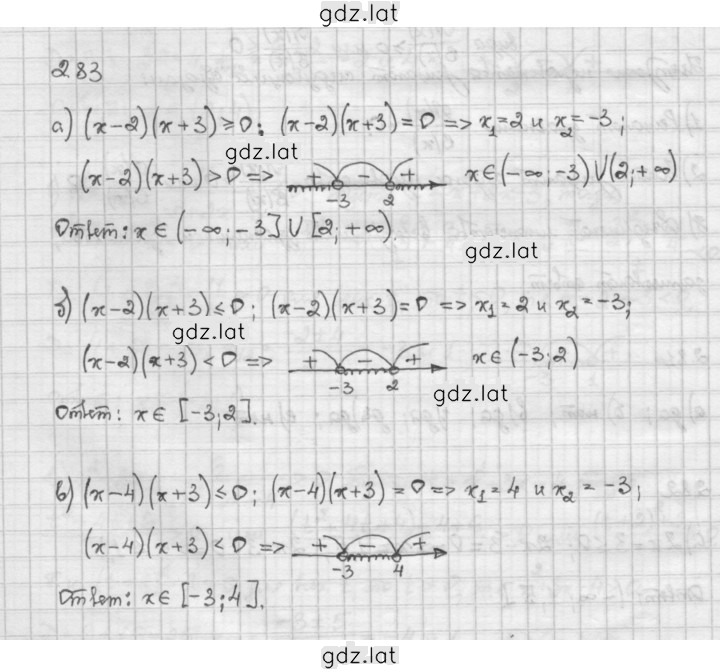 gdz.lat
283
а) (x-2)(x+3)≥0; (x-2)(x+3)=0 => x₁=2 и x₂=-3;
gdz.lat
(x-2)(x+3)>0 => + - + -3 2 x∈(-∞;-3)∪(2;+∞)
Ответ: x∈(-∞;-3]∪[2;+∞).
gdz.lat
б) (x-2)(x+3)≤0; (x-2)(x+3)=0 => x₁=2 и x₂=-3;
gdz.lat
(x-2)(x+3)<0 => + - + -3 2 x∈(-3;2)
gdz.lat
Ответ: x∈[-3;2].
в) (x-4)(x+3)≤0; (x-4)(x+3)=0 => x₁=4 и x₂=-3;
(x-4)(x+3)<0 => + - + -3 4
Ответ: x∈[-3;4].
gdz.lat